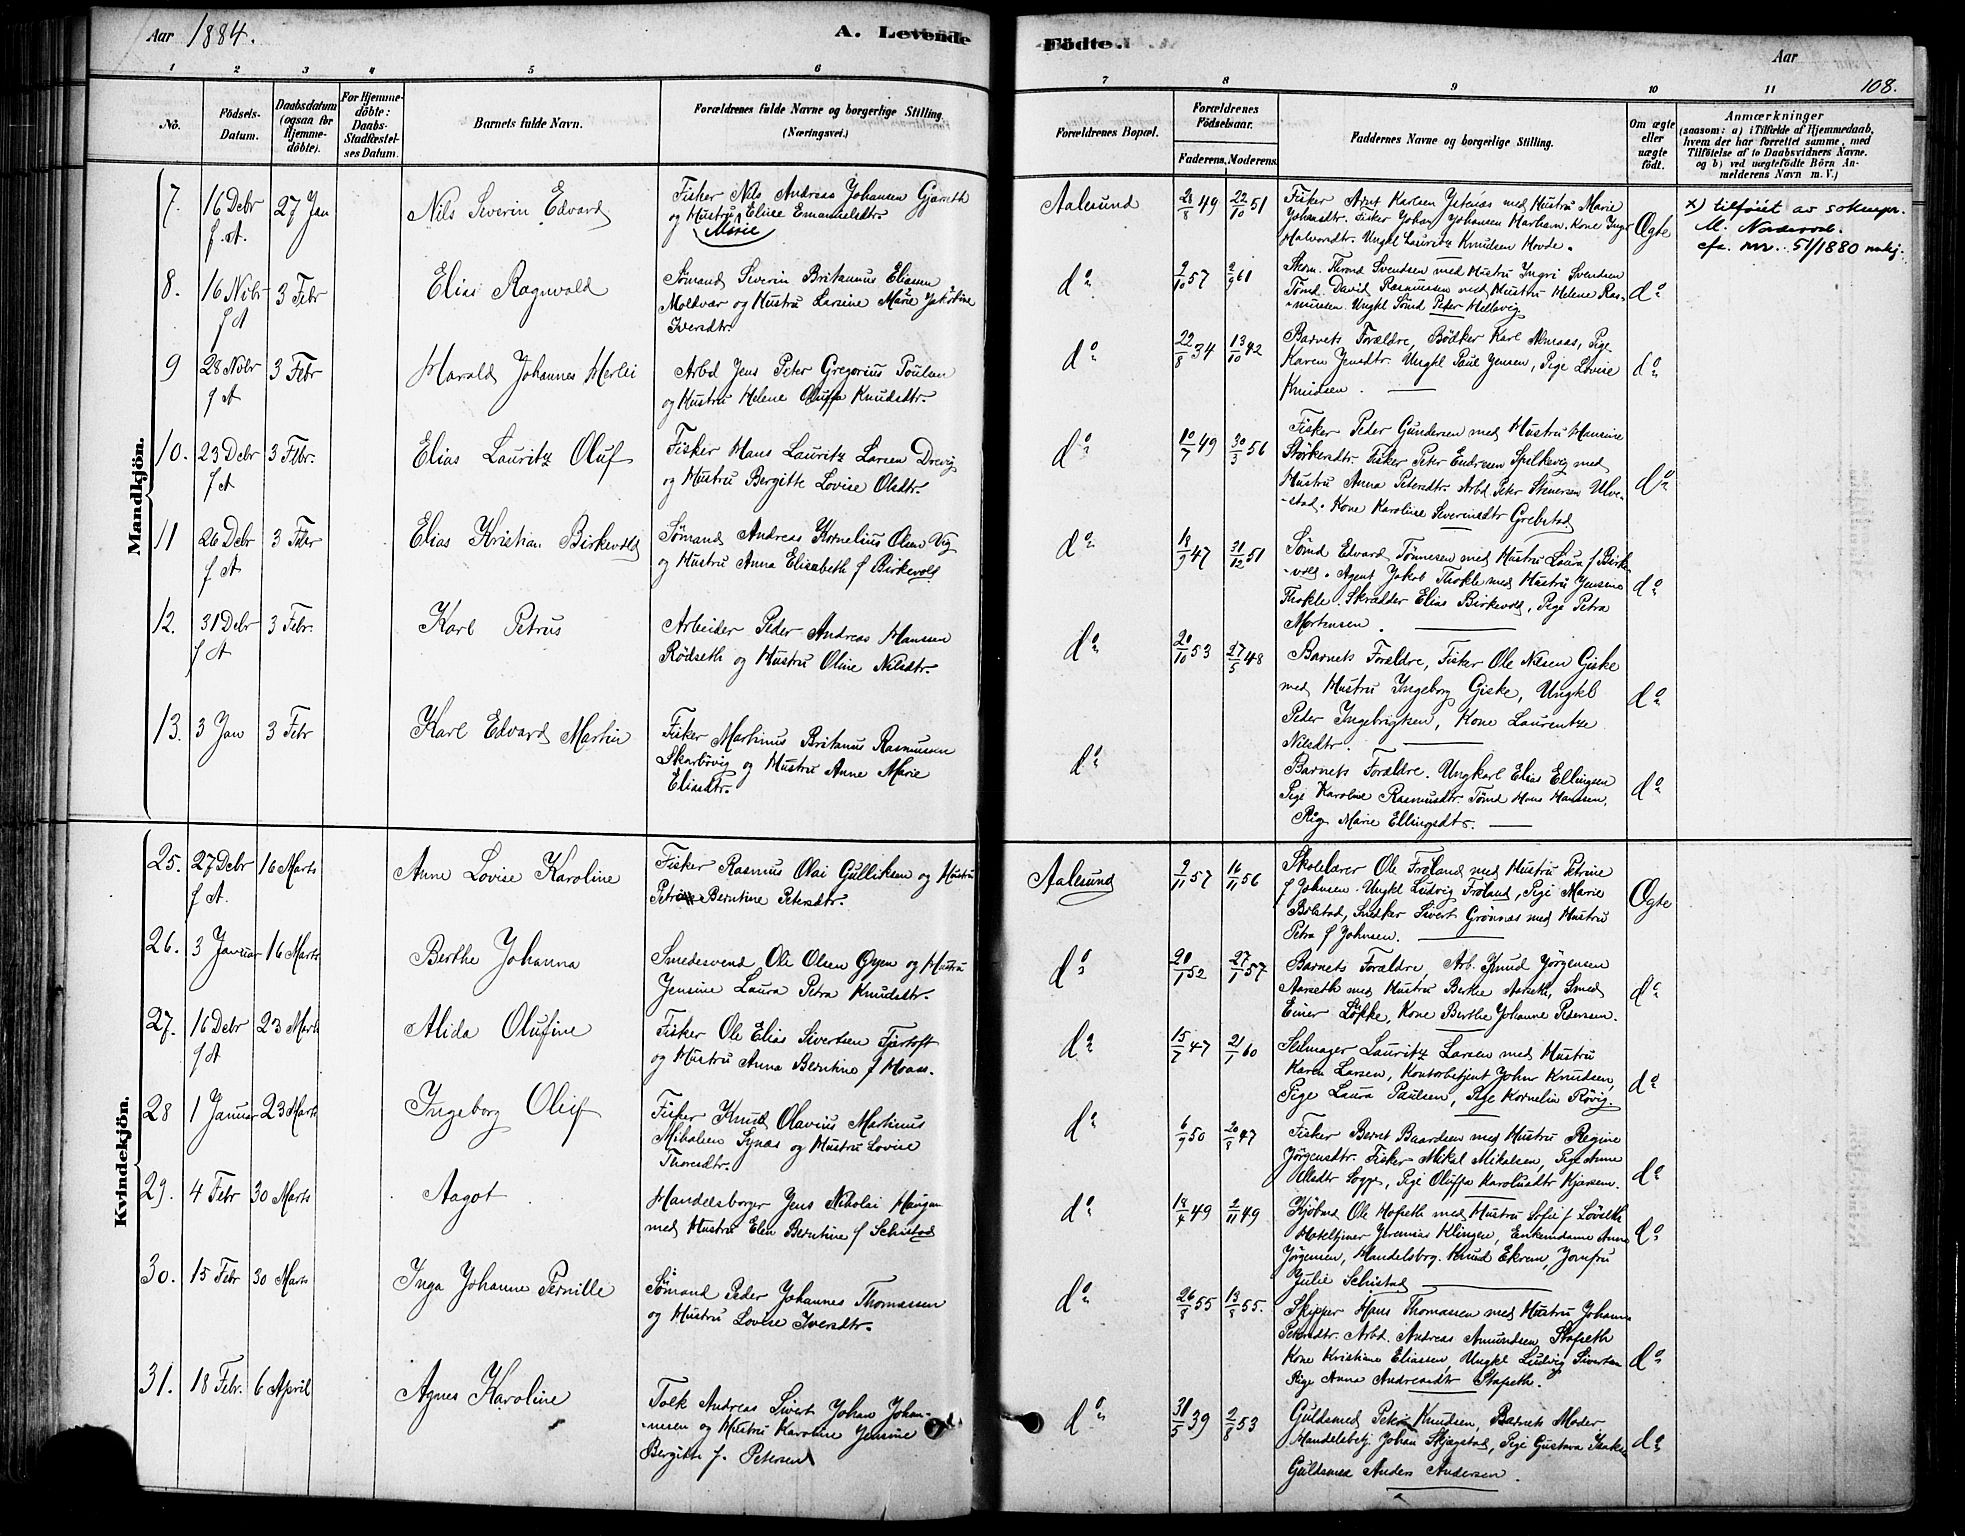 Aar 1884.
A. Levende
Födte.
Aar
108.
1
2
3
4
5
6
7
8
9
10
11
No.
Födsels-
Datum.
Daabsdatum
(ogsaa for
Hjemme-
döbte).
For Hjemme-
döbte:
Daabs-
Stadfæstel-
ses Datum.
Barnets fulde Navn.
Forældrenes fulde Navne og borgerlige Stilling
(Næringsvei.)
Forældrenes Bopæl.
Forældrenes
Födselsaar.
Faderens. Moderens.
Faddernes Navne og borgerlige Stilling.
Om ægte
eller
uægte
födt.
Anmærkninger
(saasom: a) i Tilfælde af Hjemmedaab,
hvem der har forrettet samme, med
Tilföielse af to Daabsvidners Navne.
og b) ved uægtefödte Börn An-
melderens Navn m. V.)
Mandkjön.
7. 16 Debr f. A. 27 Jan
Nils Severin Edvard
Fisker Nils Andreas Johansen
og Hustru Elise Emanuelsdtr.
Marie
Aalesund
28/8 49 22/10 51
Fisker Arnt Karlsen med Hustru Marie
Johnsdtr. Fisker Johan Johansen Marham. Kone
Halvorsdtr. Ungkl Lauritz Knudsen Hovde.
Ægte
x) tilføiet av soknepr.
cfr. nr. 51/1880
8. 16 Nvbr f A 3 Febr
Elias Ragnvald
Sømand Severin Britannus Eliasen
Moldvær og Hustru Larsine Marie
Iversdtr.
do
2/10 57 2/9 61
Thrond Svendsen med Hustru Ingri Svendsen
Tømd. David Rasmussen med Hustru Helene Ras-
mussen Ungkl Sømd Peter Hellevig
do
9 28 Nvbr f A 3 Febr
Harald Johannes
Arbd Jens Peter Gregorius Poulsen
og Hustru Helene Oluffa Knudsdtr.
do
22/8 34 13/10 42
Barnets Forældre, Bødker Karl Pige
Karen Jensdtr. Ungkl Paul Jensen, Pige Lovise
Knudsen.
do
10. 23 Debr f A 3 Febr.
Elias Lauritz Oluf
Fisker Hans Lauritz Larsen Drevig
og Hustru Bergitte Lovise Olsdtr.
do
10/7 49 30/3 56
Fisker Peder Gundersen med Hustru Hansine
Størkersdtr. Fisker Peter Endresen Spilkevig med
Hustru Anna Petersdtr. Arbd. Peter Stenersen Ulve-
-stad. Kone Karoline Severinsdtr Grebstad
do
11 26 Debr f A 3 Febr
Elias Kristian Birkevold
Sømand Andreas Kornelius Olsen Vig
og Hustru Anna Elisabeth f Birkevold
do
18/9 47 31/12 51
Sømd Edvard Tønnesen med Hustru Laura f Birke-
-vold. Agent Jakob Thokle med Hustru Jensine
Thokle. Skrædder Elias Birkevold, Pige Petra
Mortensen.
do
12. 31 Debr f A 3 Febr.
Karl Petrus
Arbeider Peder Andreas Hansen
Rødseth og Hustru Oline Nilsdtr.
do
20/10 53 27/5 48
Barnets Forældre, Fisker Ole Nilsen Giske
med Hustru Ingeborg Giske, Ungkl
Peder Ingebrigtsen, Kone Laurentze
Nilsdtr.
do
13. 3 Jan 3 Febr
Karl Edvard Martin
Fisker Martinus Britanus Rasmusen
Skarbövig og Hustru Anne Marie
Eliasdtr.
do
Barnets Forældre. Ungkarl Elias Ellingsen
Pige Karoline Rasmusdtr. Tømd Hans Hanssen,
Pige Marie Ellingsdtr.
do
Kvindekjön.
25. 27 Debr f A. 16 Marts
Anne Lovise Karoline
Fisker Rasmus Olai Gulliksen og Hustru
Berntine Petersdtr.
Aalesund
2/11 57 16/11 56
Skolelærer Ole Frøland med Hustru Petrine
f Johnsen. Ungkl Ludvig Frøland, Pige Marie
Bolstad, Snedker Sivert Grønnæs med Hustru
Petra f Johnsen.
Ægte
26. 3 Januar 16 Marts
Berthe Johanna
Smedesvend Ole Olsen Øyen og Hustru
Jensine Laura Petra Knudsdtr.
do
20/1 52 27/1 57
Barnets Forældre, Arb. Knud Jørgensen
Aarseth med Hustru Berthe Aarseth, Smed
Einer Løkke, Kone Berthe Johanne Pedersen.
do
27. 16 Debr f A 23 Marts
Alida Olufine
Fisker Ole Elias Sivertsen Fjørtoft
og Hustru Anna Berntine f Moan.
do
15/7 47 21/1 60
Seilmager Lauritz Larsen med Hustru
Karen Larsen, Kontorbetjent John Knudsen,
Pige Laura Paulsen, Pige Kornelia Røvig.
do
28 1 Januar 23 Marts
Ingeborg
Fisker Knud Olavius Martinus
Mikalsen Synæs og Hustru Lovise
Thoresdtr.
do
6/9 50 20/8 47
Fisker Bernt Baardsen med Hustru Regine
Jørgensdtr. Fisker Mikal Mikalsen, Pige Anne
Olsdtr Pige Oluffa Karolusdtr
do
29. 4 Febr 30 Marts
Aagot
Handelsborger Jens Nikolai
med Hustru Elen Berntine f Schistad
do
14/4 49 2/11 49
Kjøbmd Ole Hofseth med Hustru Sofie f Løvseth
Hoteltjener Jeremias Klingen, Enkemadame Anne
Jørgensen, Handelsbrg. Knud Ekrem, Jomfru
Julie Schistad
do
30. 15 Febr 30 Marts
Inga Johanne Pernille
Sømand Peder Johannes Thomassen
og Hustru Lovise Iversdtr.
do
26/8 55 13/8 55.
Skipper Hans Thomassen med Hustru Johanne
Petersdtr. Arbd. Andreas Amundsen, Stafseth
Kone Kristine Eliassen, Ungkl Ludvig Sivertsen
Pige Anna Andreasdtr Stafseth.
do
31. 18 Febr. 6 April
Agnes Karoline
Tolk Andreas Sivert Johan Johan-
-nesen og Hustru Karoline Jensine
Bergitte f. Petersen
do
31/5 39 2/8 53
Guldsmed Peter Knudsen, Barnets Moder
Handelsbetj. Johan Skjegstad, Pige Gustava
Guldsmed Anders Andersen.
do